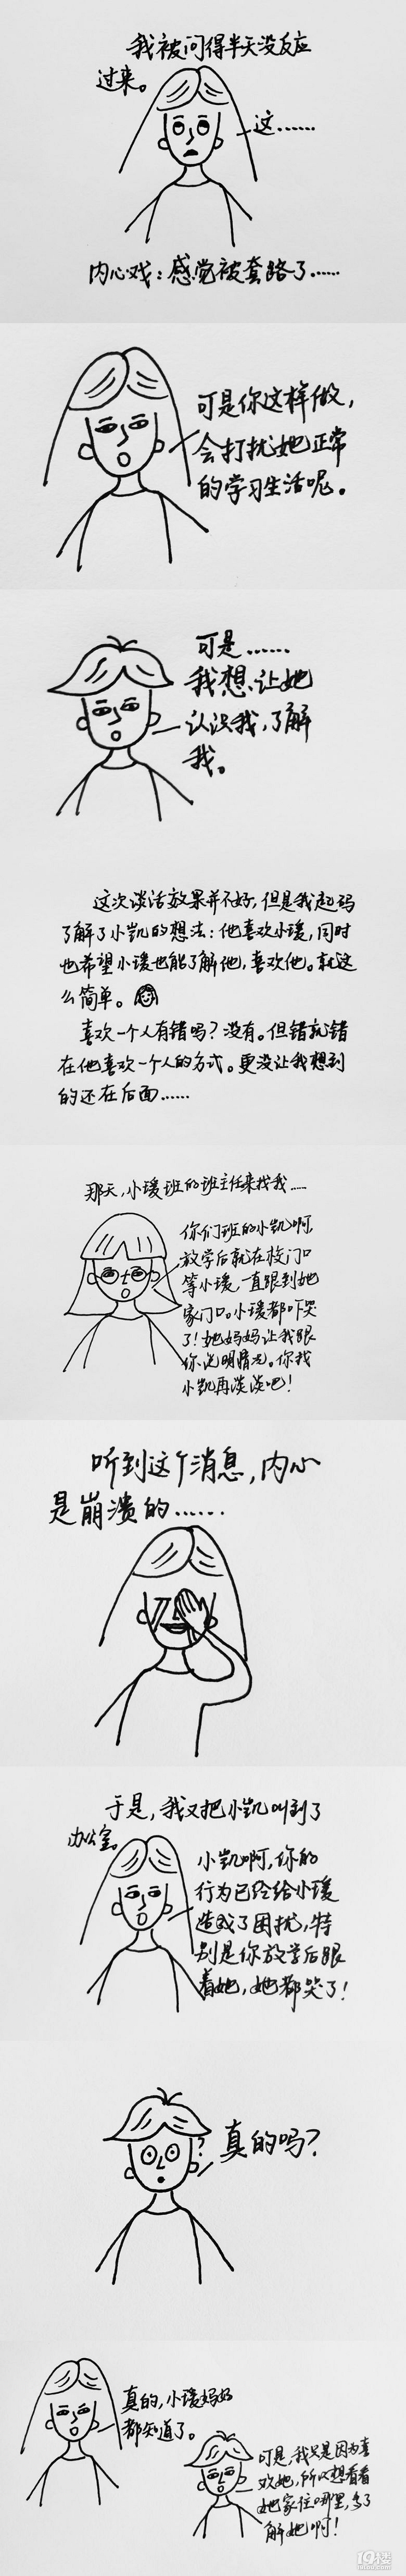 我被问得半天没反应
过来。
这……
内心戏：感觉被套路了……
可是你这样做，
会打扰她正常
的学习生活呢。
可是……
我想让她
认识我，了解
我。
这次谈话效果并不好，但是我起码
了解了小凯的想法：他喜欢小瑗，同时
也希望小瑗也能了解他，喜欢他。就这
么简单。
喜欢一个人有错吗？没有。但错就错
在他喜欢一个人的方式。更没让我想到
的还在后面……
那天，小瑗班的班主任来找我……
你们班的小凯啊，
放学后就在校门口
等小瑗，一直跟到她
家门口。小瑗都吓哭
了！她妈妈让我跟
你说明情况。你找
小凯再谈谈吧！
听到这个消息，内心
是崩溃的……
于是，我又把小凯叫到了
办公室。
小凯啊，你的
行为已经给小瑗
造成了困扰，特
别是你放学后跟
着她，她都哭了！
?
真的吗？
真的，小瑗妈妈
都知道了。
可是，我只是因为喜
欢她，所以想看看
她家住哪里，多了
解她啊！
19楼